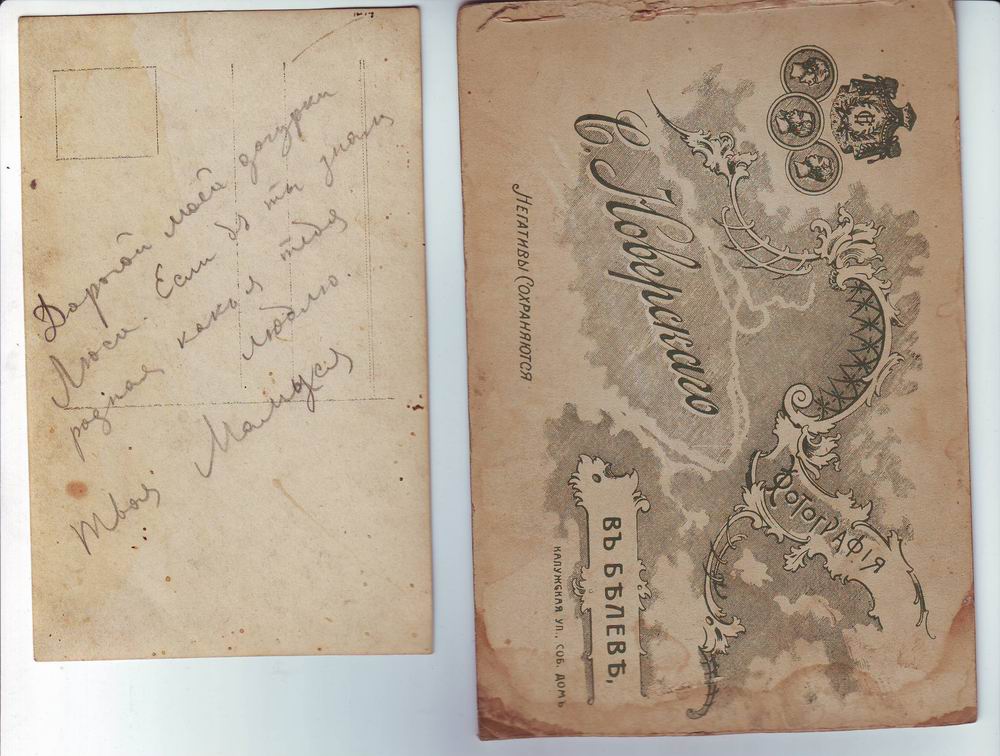 Дорогой моей дочурки
Люси. Если бы ты знали
родная какъя тебя
люблю.
Твоя Мамуся
Фотографія
С. Новерскаго
Негативы Сохраняются
въ Бѣлевѣ,
Калужская ул., соб. домъ
Ф